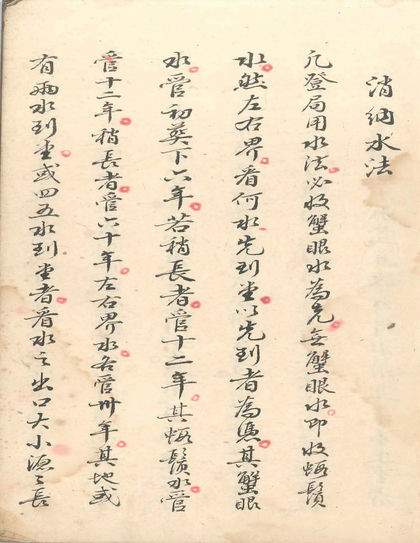 消納水法
凡登局用水法必收蟹眼水為先無蟹眼水即收蝦鬚
水然左右界看何水先到堂以先到者為憑其蟹眼
水管初葬下六年若稍長者管十二年其蝦鬚水管
管十二年稍長者管六十年左右界水各管卅年其地或
有兩水到堂或四五水到堂者看水之出口大小源之長